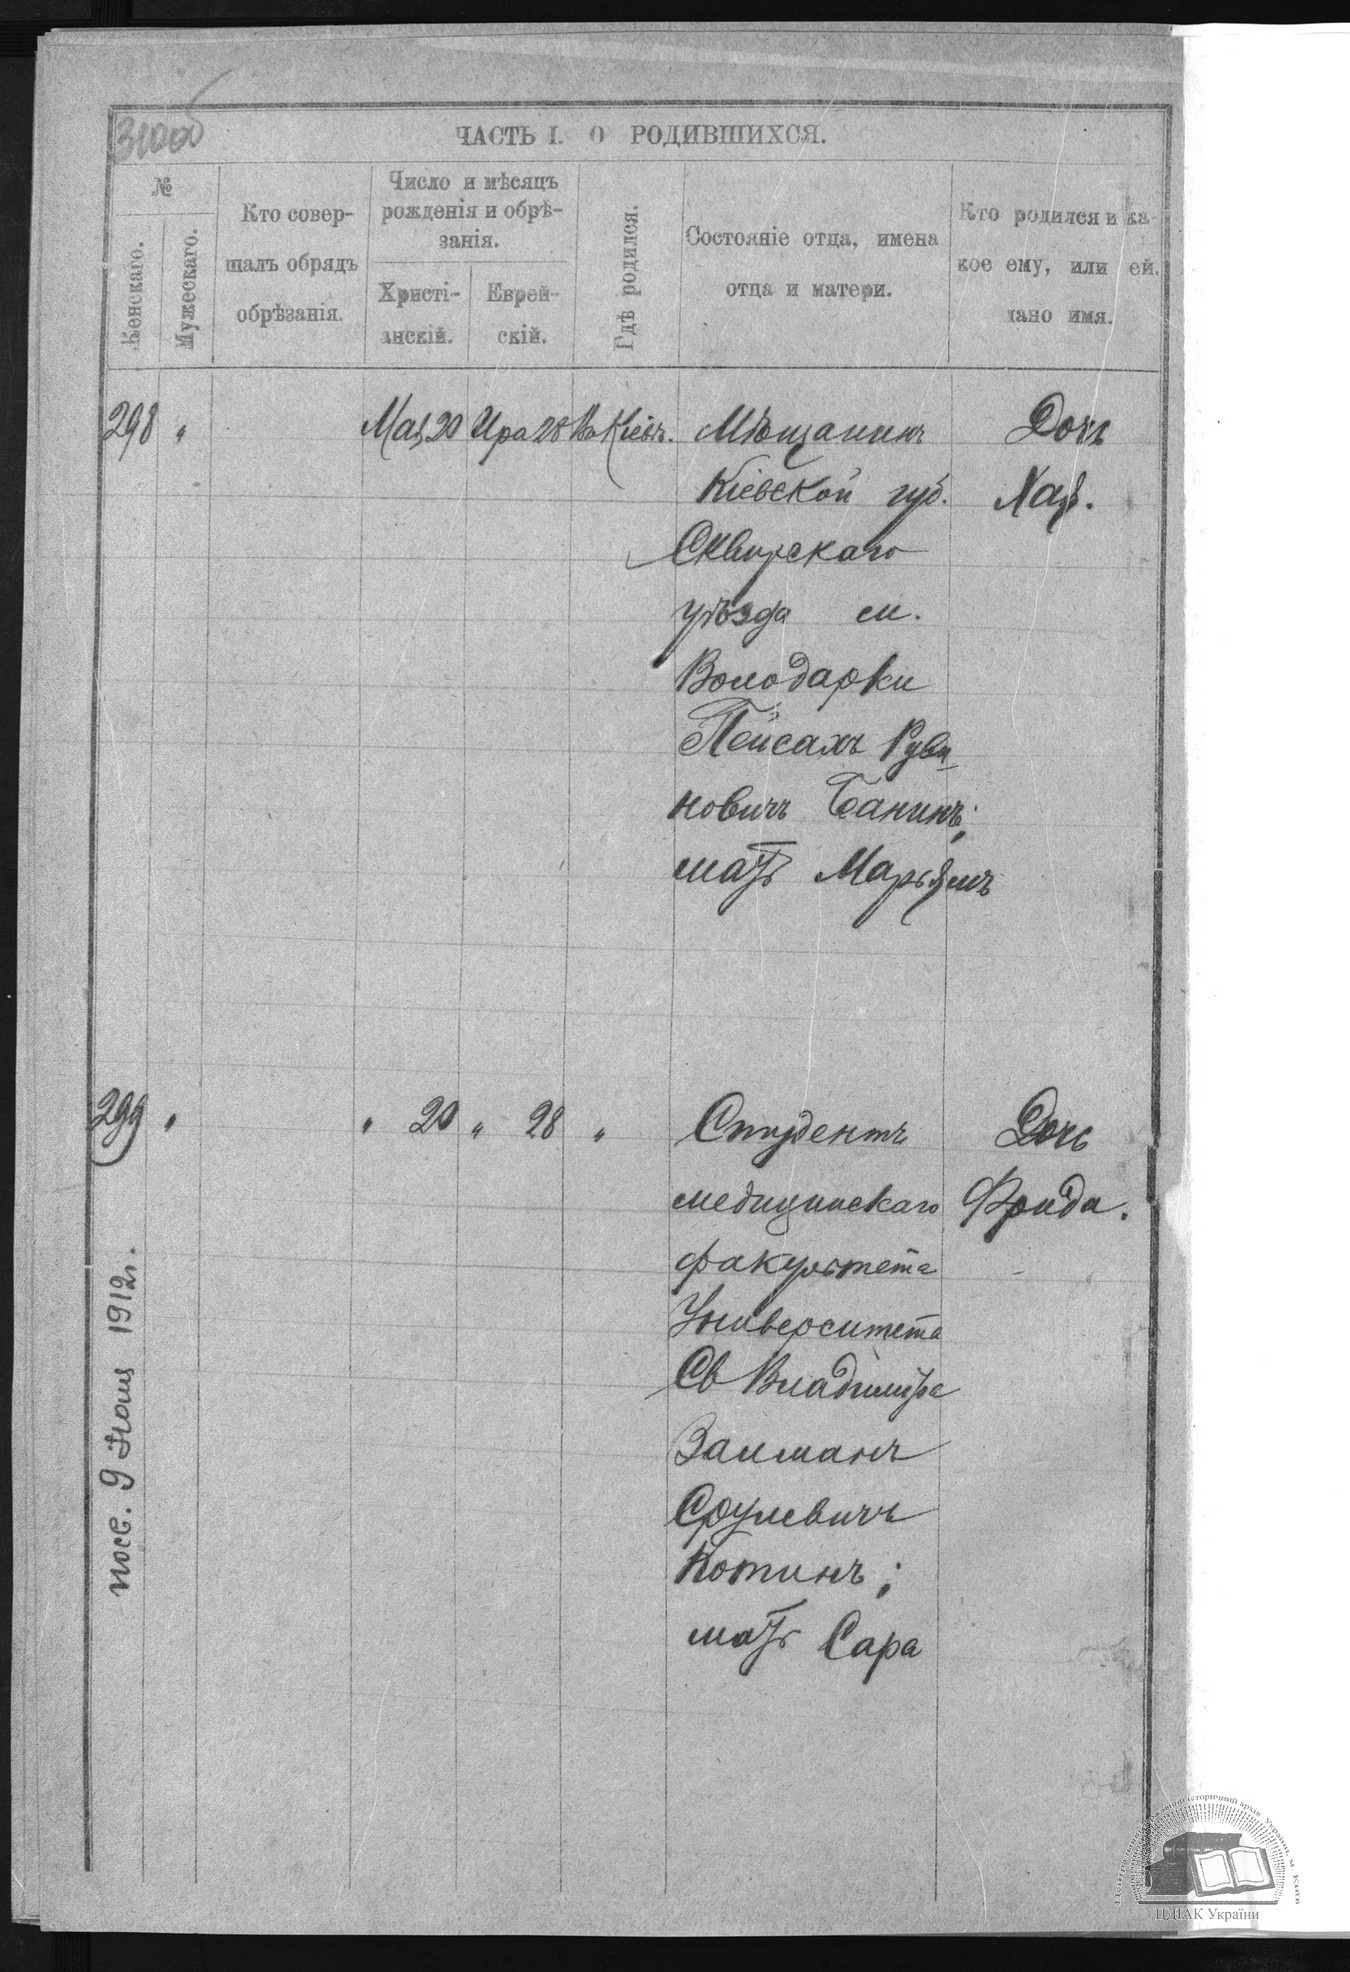 310об
ЧАСТЬ I. О РОДИВШИХСЯ.
№
Женскаго.
Мужескаго.
Кто совер-
шалъ обрядъ
обрѣзанія.
Число и мѣсяцъ
рожденія и обрѣ-
занія.
Христі-
анскій.
Еврей-
скій.
Гдѣ родился.
Состояніе отца, имена
отца и матери.
Кто родился и ка-
кое ему, или ей,
дано имя.
298 " Мая 20 Ира 28 Въ Кіевѣ. Мѣщанинъ Дочь
Кіевской губ. Хая.
Сквирскаго
уѣзда м.
Володарки
Пейсахъ Руви-
новичъ Банинъ;
мать Марьямъ
299 " " 20 " 28 " Студентъ Дочь
медицинскаго Фрида.
факультета
Университета
Св Владиміра
Залманъ
Срулевичъ
Котинъ;
мать Сара
9 1912г.
ЦДІАК України